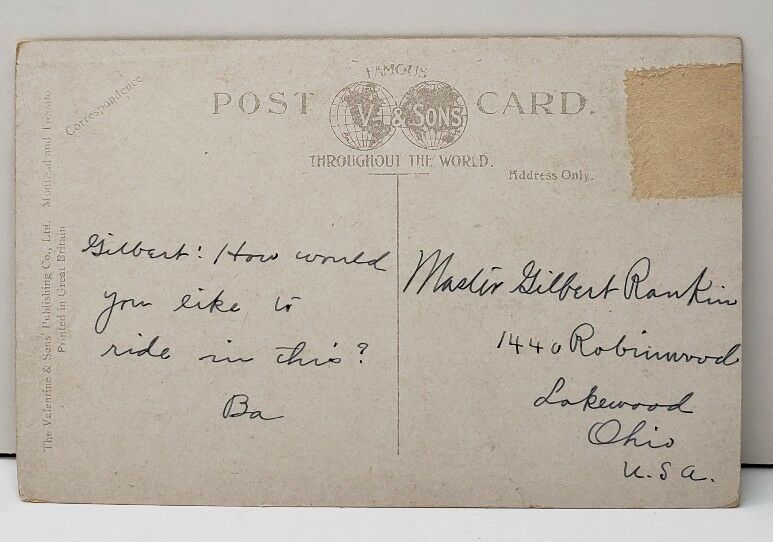 FAMOUS
POST CARD.
V. & SONS
THROUGHOUT THE WORLD.
Correspondence
Address Only.
The Valentine & Sons' Publishing Co., Ltd. Montreal and Toronto
Printed in Great Britain
Gilbert: How would
you like to
ride in this?
Ba
Master Gilbert Rankin
1440 Robinwood
Lakewood
Ohio
U.S.A.